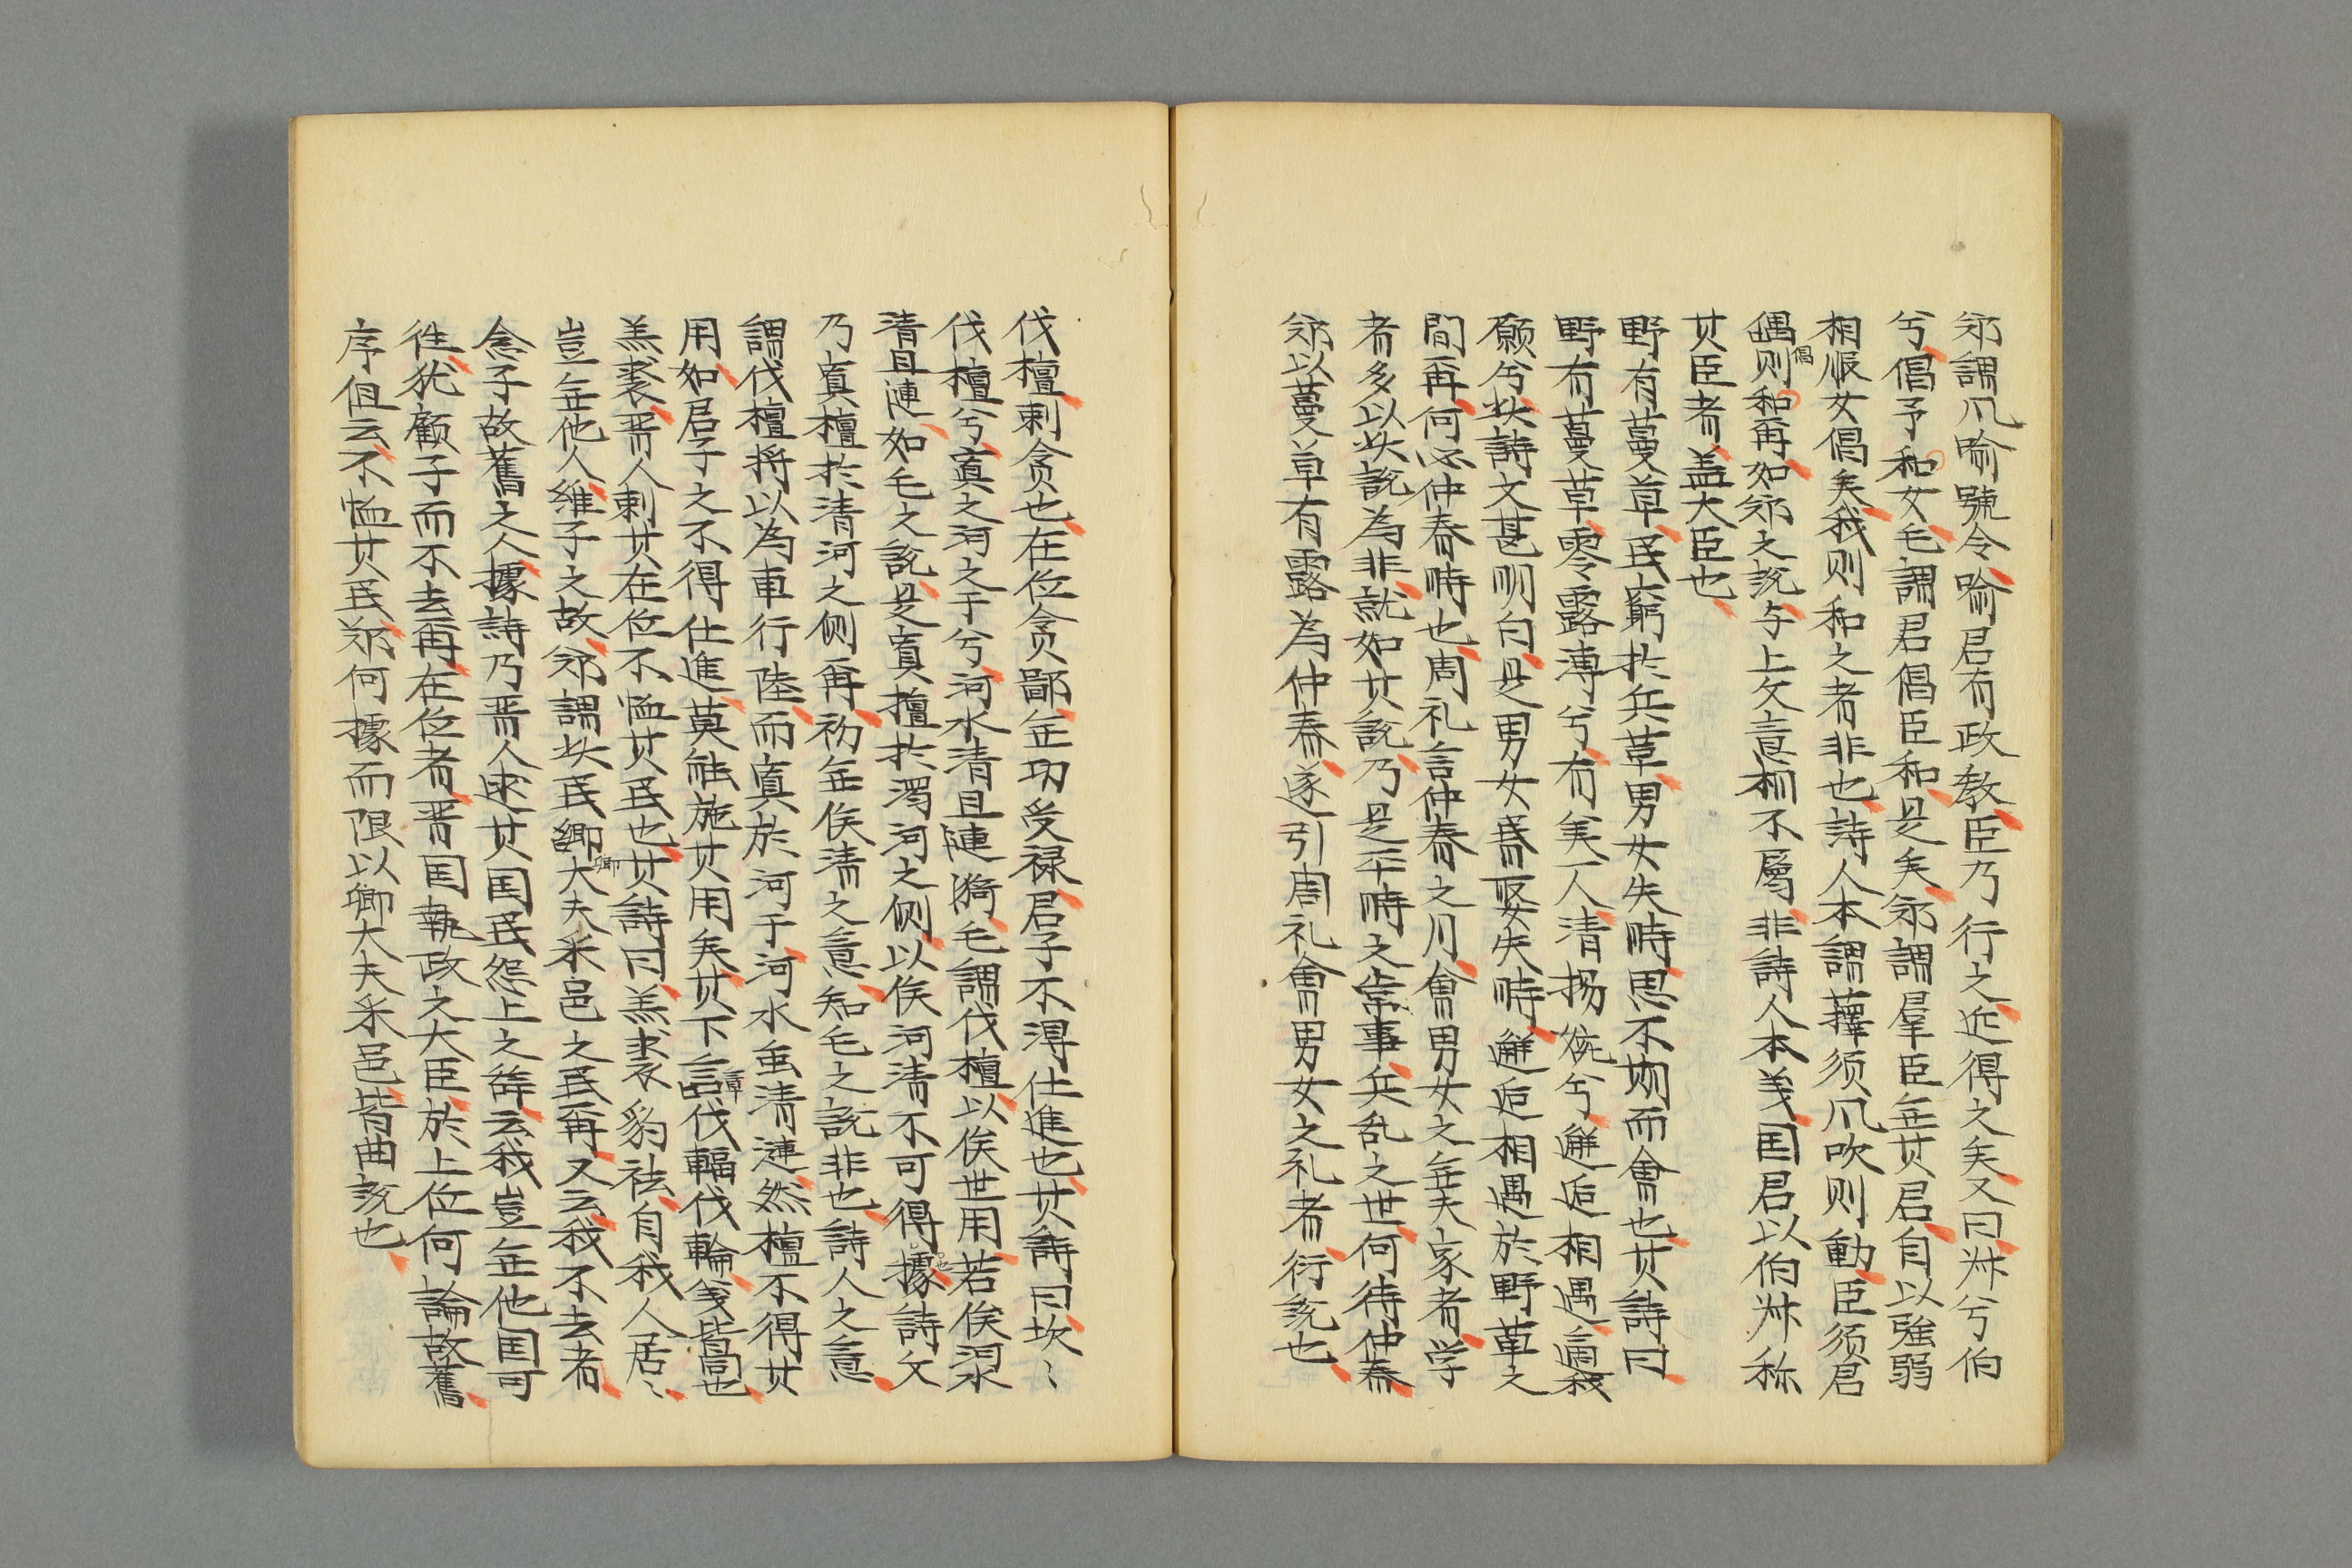 郑謂风喻號令喻君有政教臣乃行之近得之矣又曰叔兮伯
兮倡予和女毛謂君倡臣和是矣郑謂羣臣無其君自以強弱
相服女倡矣我则和之者非也詩人本謂蘀须风吹则動臣须君
倡则和再如郑之說与上文意相不屬非詩人本義国君以伯叔称
倡
其臣者盖大臣也
野有蔓草民窮於兵革男女失時思不期而會也其詩曰
野有蔓草零露漙兮有美一人清揚婉兮邂逅相遇適我
願兮此詩文甚明白是男女昏娶失時邂逅相遇於野草之
間再何必仲春時也周礼言仲春之月會男女之無夫家者学
者多以此說為非就如其說乃是平時之常事兵乱之世何待仲春
郑以蔓草有露為仲春遂引周礼會男女之礼者衍說也
伐檀刺贪也在位贪鄙無功受禄君子不得仕進也其詩曰坎〻
伐檀兮寘之河之干兮河水清且漣猗毛謂伐檀以俟世用若俟河水
清且漣如毛之說是寘檀於濁河之侧以俟河清不可得據詩文
也
乃寘檀於清河之侧再初無俟清之意知毛之說非也詩人之意
謂伐檀将以為車行陸而寘於河干河水虽清漣然檀不得其
用如君子之不得仕進莫能施其用矣其下言伐輻伐輪義皆同也
章
羔裘晋人刺其在位不恤其民也其詩曰羔裘豹祛自我人居〻
豈無他人維子之故郑謂此民卿大夫采邑之民再又云我不去者
卿
念子故舊之人據詩乃晋人述其国民怨上之辞云我豈無他国可
往犹顧子而不去再在位者晋国執政之大臣於上位何論故舊
序但云不恤其民郑何據而限以卿大夫采邑皆曲說也